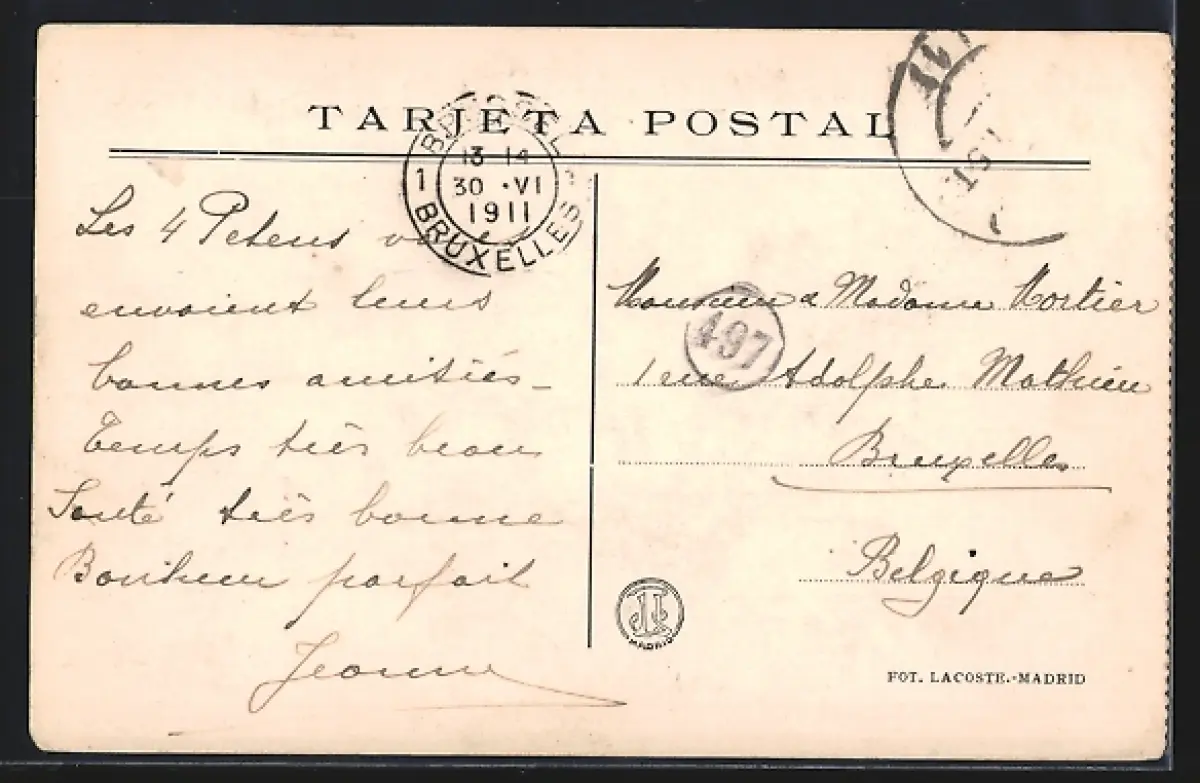 TARJETA POSTAL
13-14
30 · VI
1911
1
BRUXELLES
Les 4 Petens
envoient leurs
bonnes amitiés -
Temps très beau
Santé très bonne
Bonheur parfait
Jeanne
Monsieur & Madame Mortier
497
1 rue Adolphe Mathieu
Bruxelles
Belgique
MADRID
FOT. LACOSTE.-MADRID